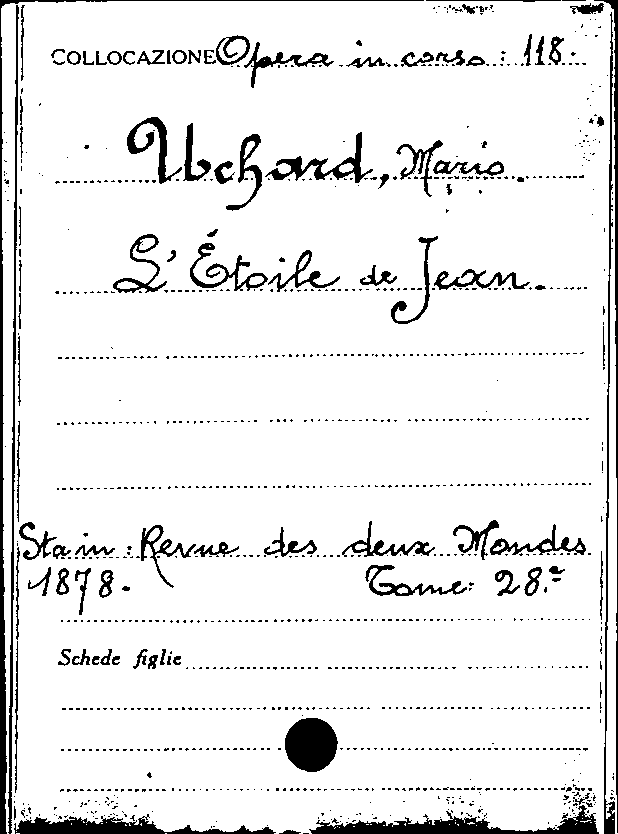 COLLOCAZIONE Opera in corso : 118.
Uchard, Mario.
L'Étoile de Jean.
Sta in : Revue des deux Mondes
1878. Tome: 28.º
Schede figlie